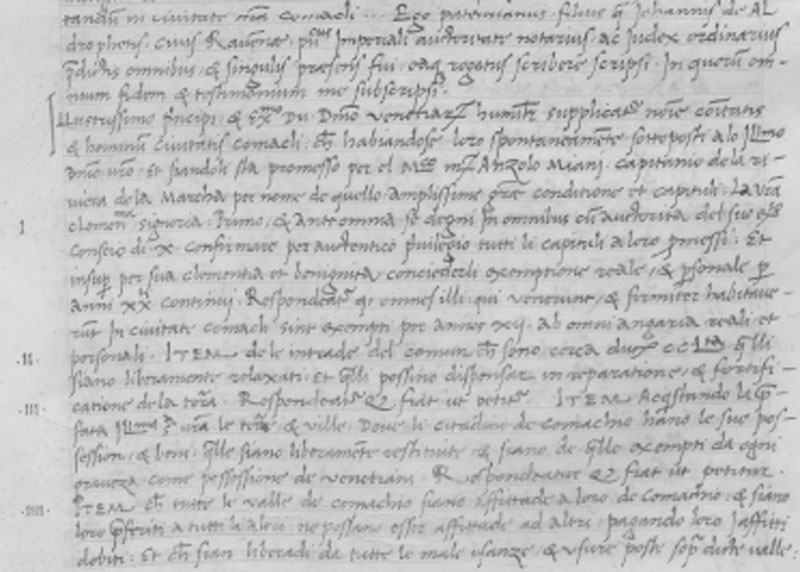 tandum in civitate nrā comacli ... Ego paternianus filius q̄ Johannis de AL
drophens. civis Ravenne. pūs Imperiali auctoritate notarius ac Judex ordinarius
p̄dictis omnibus, & singulis præsens fui, eaq rogatus scribere scripsi. In quorum om-
nium fidem & testimonium me subscripsi.
Illustrissimo principi, & Exmo Du. Dmō venetiarȝ humilr supplicatr noīe coītatis
& hominum civitatis comacli. ch̄ habiandose loro spontaneamēte sottoposti a lo Illmo
Dmō vrō. Et siandoli sta promesso per el Mco mȝ Anzolo Miani capitanio de la ri-
viera de la Marcha per nome de quello amplissime grae conditione et capituli. La vrā
clemenma signoria. Primo, & ante omnia se degni in omnibus cū auctorita del suo
I
Conseio di X. confirmare per autentico p̄vilegio tutti li capituli a loro p̄messi. Et
insup̄ per sua clementia et benignita conciederli exemptione reale, & p̄sonale p̄
anni XX continui. Respondeatr q omnes illi qui venerunt, & firmiter habitave-
rūt in civitate comacli sint exempti per annos XII. ab omni angaria reali et
.II. personali. ITEM de le intrade del comun ch̄ sono cerca duȝ CC q̄lli
siano liberamente relaxati. Et q̄lli possino dispensar in reparatione, & fortifi-
.III. catione de la terra. Respondeatr Q fiat ut petitr. ITEM Acq̄stando la p̄-
fata Illma S. vrā le terre & ville. Dove le citadine de comachio hāno le sue pos-
session, & beni q̄lle siano liberamēte restituite & siano de q̄llo exempti da ogni
graveza come possessione de venetiani. Respondeatur Q fiat ut petitur.
.IIII. ITEM ch̄ tutte le valle de comachio siano affittade a loro de comachio, & siano
loro p̄feriti a tutti li altri ne possano esser affittade ad altri pagando loro l affitti
dobiti. Et ch̄ sian liberadi da tutte le male usanze, & usure poste sopr dicte valle: